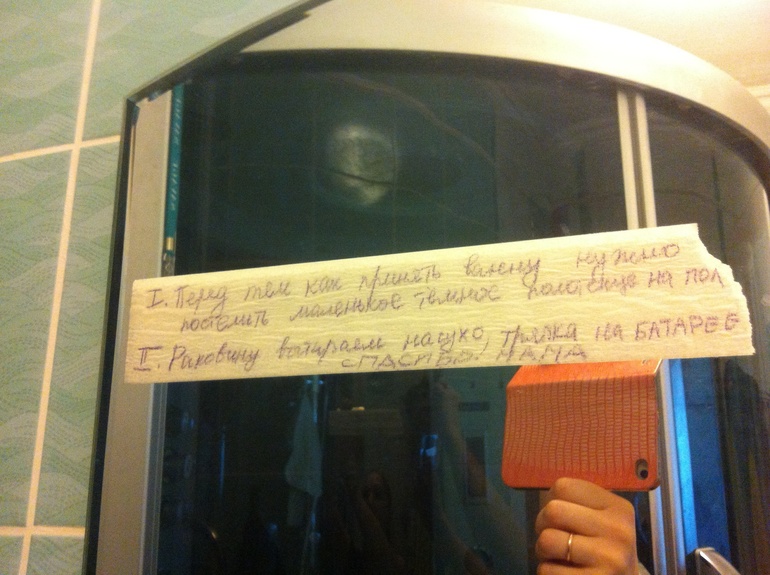 I. Перед тем как принять ванну нужно
постелить маленькое темное полотенце на пол
II. Раковину вытираем насухо, тряпка на БАТАРЕЕ
СПАСИБО. МАМА